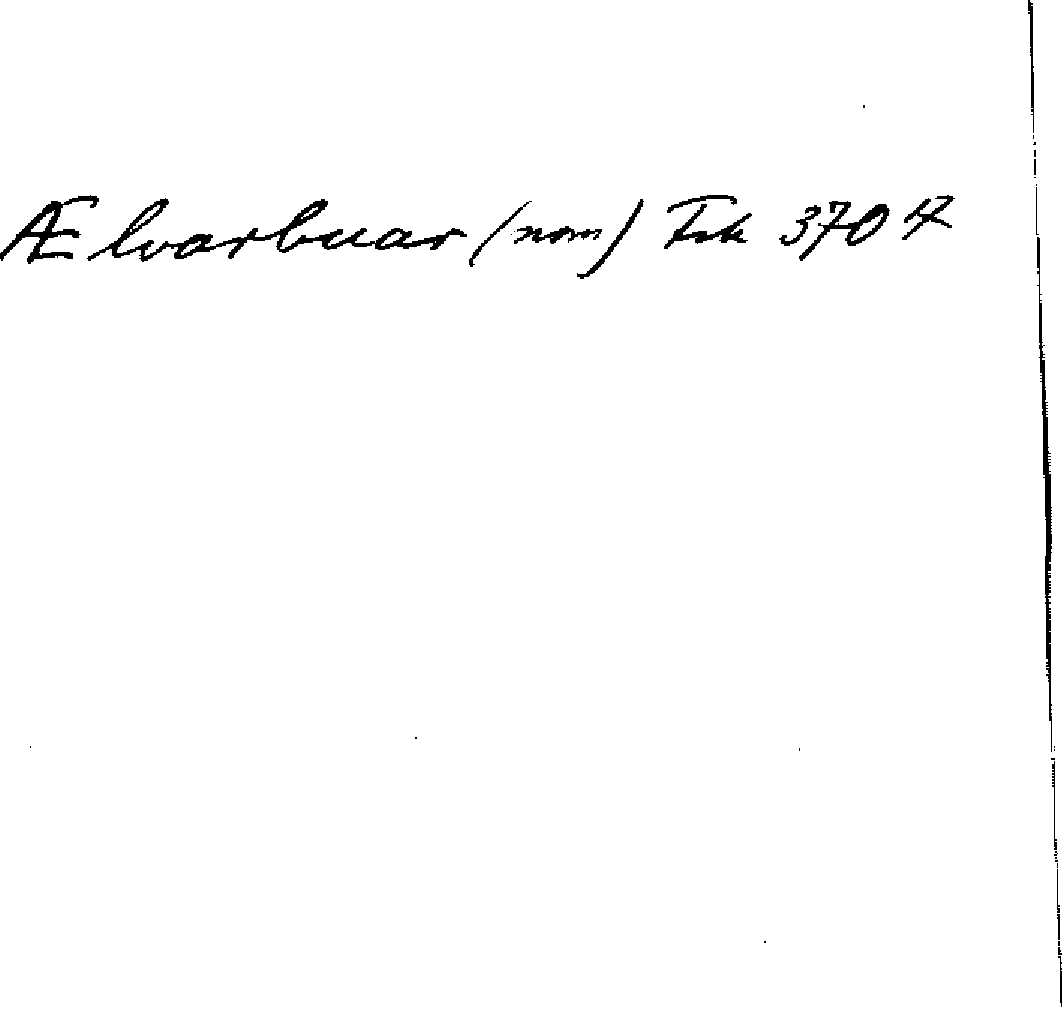 Ælvarbuar (nom) Fsk 370 17